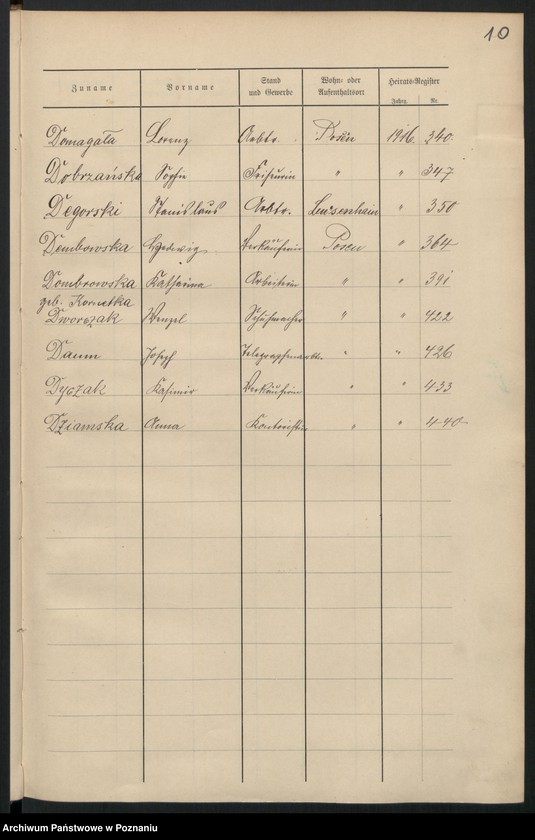 10
Zuname Vorname Stand und Gewerbe Wohn- oder Aufenthaltsort Heirats-Register
Jahrg. Nr.
Domagała Lorenz Arbtr. Posen 1916. 340.
Dobrzańska Sophie Friseurin " " 347
Degorski Stanislaus Arbtr. Luisenhain " 350
Dembowska Hedwig Verkäuferin Posen " 364
Dombrowska Katharina Arbeiterin " " 391
geb. Kornetka
Dworczak Wenzel Schuhmacher " " 422
Daum Joseph " " 426
Dyczak Kasimir " " 433
Dziamska Anna Kontoristin " " 440
Archiwum Państwowe w Poznaniu